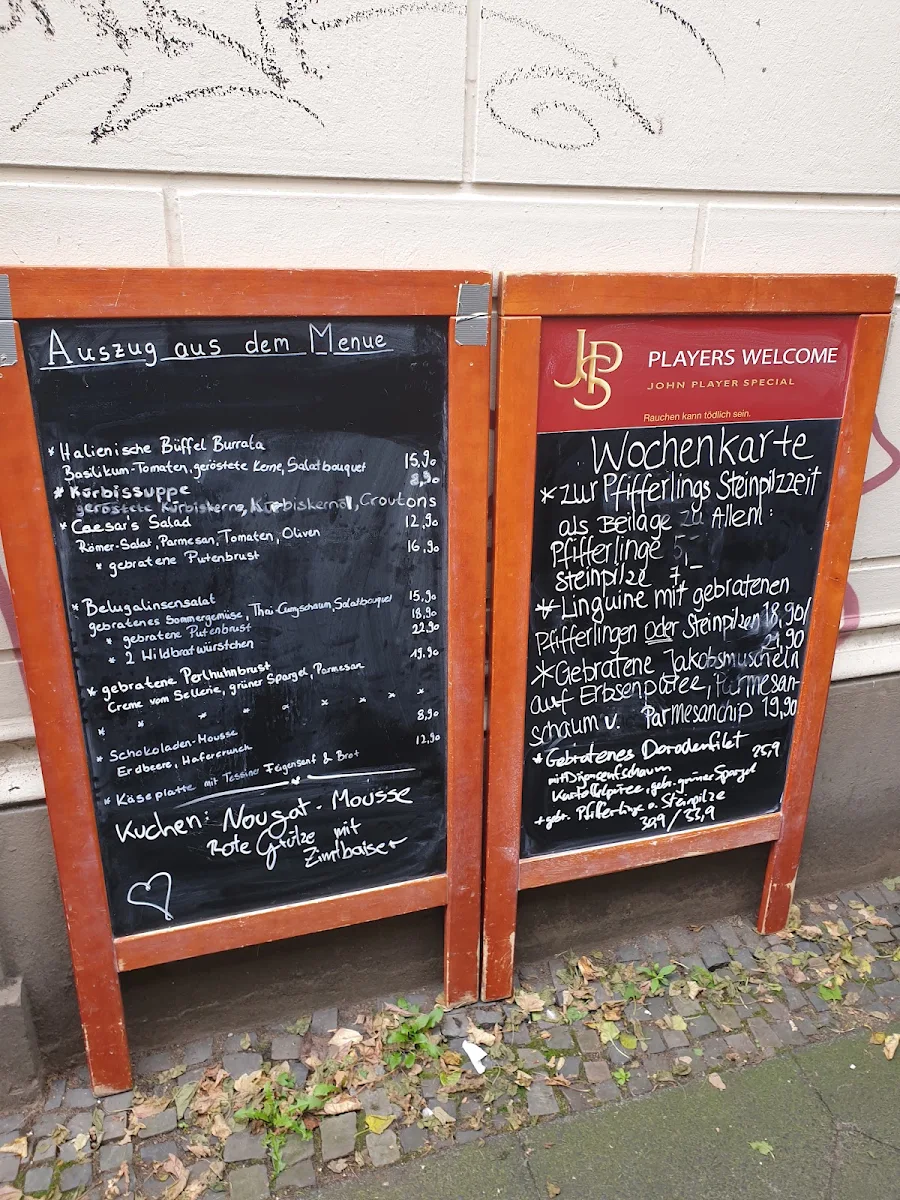 Auszug aus dem Menue
* Italienische Büffel Burrata
Basilikum-Tomaten, geröstete Kerne, Salatbouquet 15,90
* Kürbissuppe 8,90
geröstete Kürbiskerne, Kürbiskernöl, Croutons
* Caesar's Salad 12,90
Römer-Salat, Parmesan, Tomaten, Oliven
* gebratene Putenbrust 16,90
* Belugalinsensalat 15,90
gebratenes Sommergemüse, Thai-Curryschaum, Salatbouquet
* gebratene Putenbrust 18,90
* 2 Wildbratwürstchen 22,90
* gebratene Perlhuhnbrust 19,90
Creme vom Sellerie, grüner Spargel, Parmesan
* * * * * * * *
* Schokoladen-Mousse 8,90
Erdbeere, Hafercrunch
* Käseplatte mit Tessiner Feigensenf & Brot 12,90
Kuchen: Nougat-Mousse
Rote Grütze mit
Zimtbaiser
JPS
PLAYERS WELCOME
JOHN PLAYER SPECIAL
Rauchen kann tödlich sein.
Wochenkarte
* zur Pfifferlings Steinpilzzeit
als Beilage zu Allem:
Pfifferlinge 5,-
Steinpilze 7,-
* Linguine mit gebratenen
Pfifferlingen oder Steinpilzen 18,90/
21,90
* Gebratene Jakobsmuscheln
auf Erbsenpüree, Parmesan-
schaum u. Parmesanchip 19,90
* Gebratenes Doradenfilet
mit Dijonsenfschaum 25,9
Kartoffelpüree, gebr. grüner Spargel
+ gebr. Pfifferlinge o. Steinpilze
30,9 / 33,9